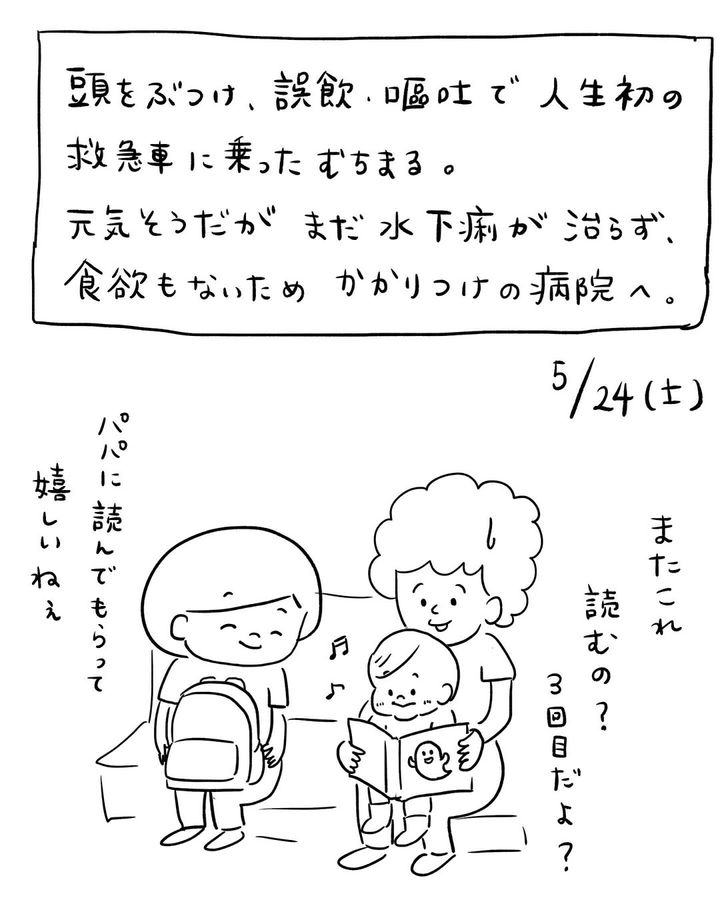 頭をぶつけ、誤飲・嘔吐で 人生初の
救急車に乗ったむちまる。
元気そうだが まだ水下痢が治らず、
食欲もないため かかりつけの病院へ。
5/24(土)
またこれ
読むの？
3回目だよ？
パパに読んでもらって
嬉しいねぇ